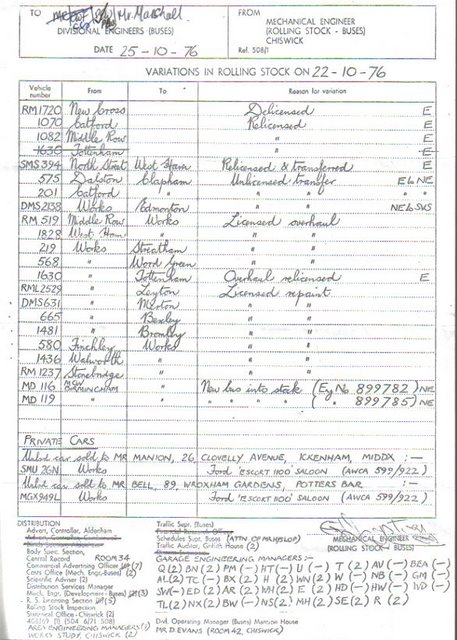 TO Mr Marshall
DIVISIONAL ENGINEERS (BUSES)
DATE 25-10-76
FROM
MECHANICAL ENGINEER
(ROLLING STOCK - BUSES)
CHISWICK
Ref. 508/1
VARIATIONS IN ROLLING STOCK ON 22-10-76
Vehicle number From To Reason for variation
RM1720 New Cross Delicensed E
1070 Catford Relicensed E
1082 Middle Row " E
1630 Tottenham " E
SMS394 North Street West Ham Relicensed & transferred E
575 Dalston Clapham Unlicensed transfer E to NE
201 Catford " " " "
DMS2138 Works Edmonton " " NE to SXS
RM519 Middle Row Works Licensed overhaul
1828 West Ham " " "
219 Works Streatham " "
568 " Wood Green " "
1630 " Tottenham Overhaul relicensed E
RML2529 " Leyton Licensed repaint
DMS631 " Merton " "
665 " Bexley " "
1481 " Bromley " "
580 Finchley Works " "
1436 Walworth " " "
RM1237 Stonebridge " "
MD116 MCW BIRMINGHAM New bus into stock (Eng No 899782) NE
MD119 " " " " " ( " 899785) NE
PRIVATE CARS
car sold to MR MANION, 26 CLOVELLY AVENUE, ICKENHAM, MIDDX :—
SMU 2GN Works Ford 'ESCORT 1100' SALOON (AWCA 599/922)
car sold to MR BELL, 89, WROXHAM GARDENS, POTTERS BAR :—
MGX949L Works Ford 'ESCORT 1100' SALOON (AWCA 599/922)
DISTRIBUTION
Advert. Controller, Aldenham
Body Spec. Section,
Central Record ROOM 34
Commercial Advertising Officer (7)
Costs Office (Mech. Engr-Buses) (2)
Scientific Adviser (2)
Distribution Services Manager
Mech. Engr. (Development - Buses) (3)
R. S. Licensing Section (5)
Rolling Stock Inspection
Statistical Officer (2)
AREA ENGINEERING MANAGERS
WORKS STUDY, CHISWICK (2)
Traffic Supr. (Buses)
Schedules Supt. Buses (ATTN OF
Traffic Auditor, Griffith House (2)
MECHANICAL ENGINEER
(ROLLING STOCK - BUSES)
GARAGE ENGINEERING MANAGERS :-
Q (2) BN (2) PM (-) HT (-) U (-) T (2) AV (-) BEA (-)
AL (2) TC (-) BX (2) H (2) WN (2) W (-) NB (-) GM (-)
SW (-) ED (2) AR (2) WH (2) E (2) HD (-) HW (-) WD (-)
TL (2) NX (2) BW (-) NS (2) MH (2) SE (2) R (2)
Divl. Operating Manager (Buses) Manson House
MR D EVANS (ROOM 42, CHISWICK)